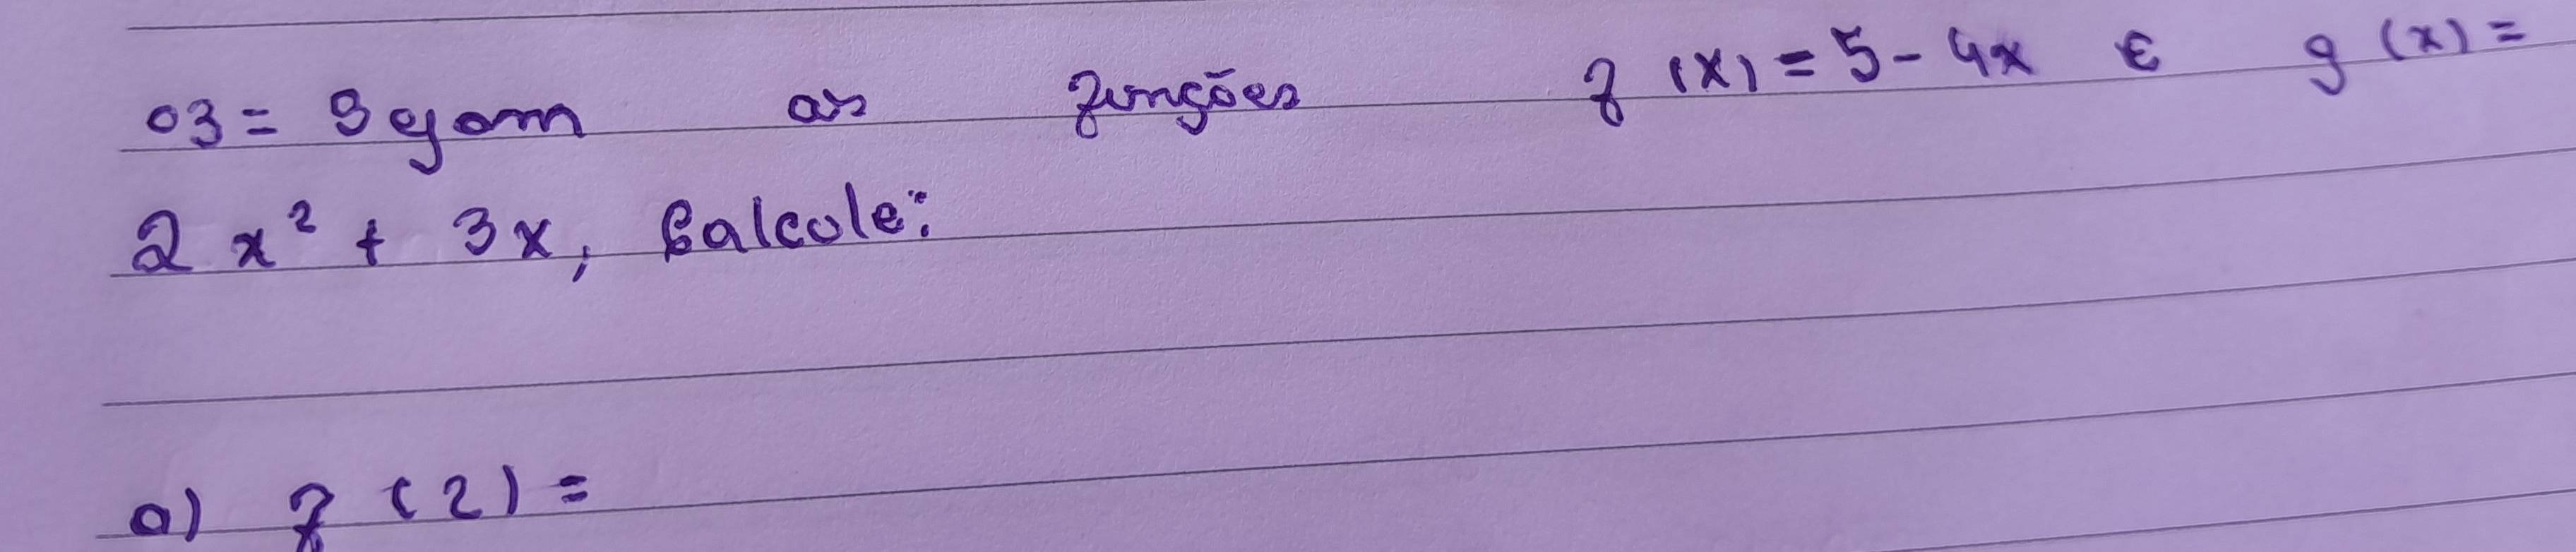 03= Sejam as funções f (x) = 5 - 4x e g (x) =
2 x² + 3x, Calcule:
a) f (2) =